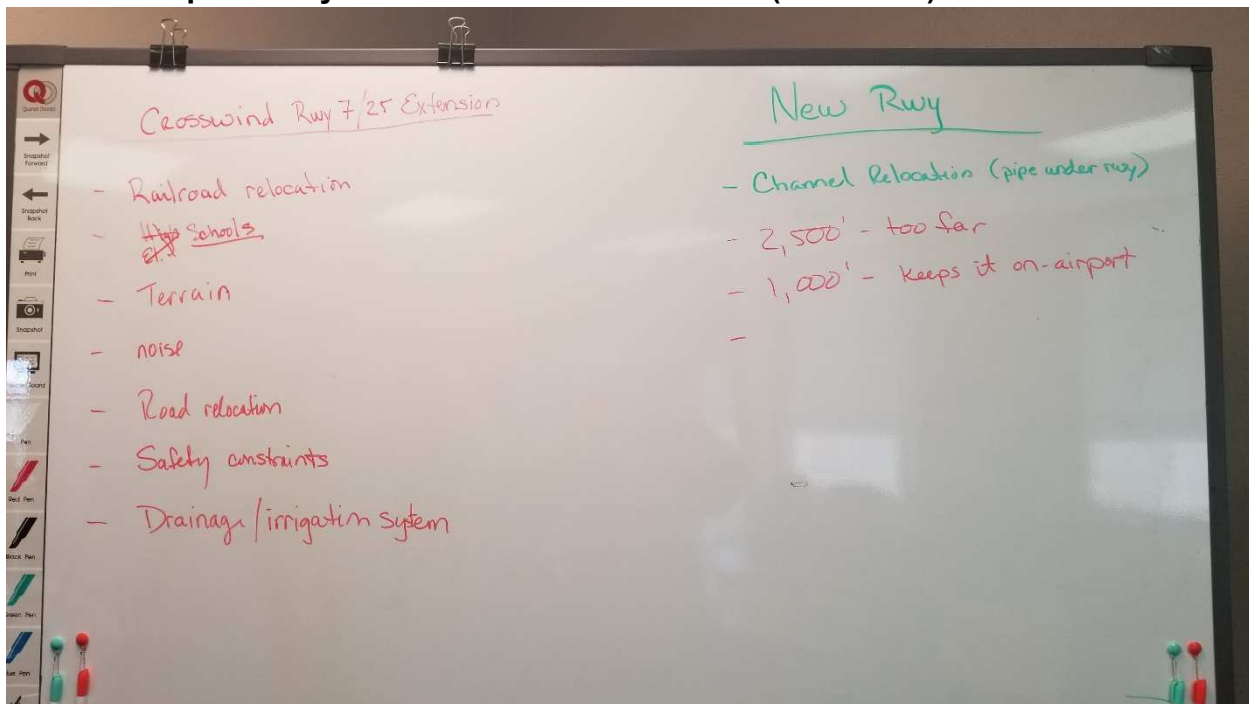 Crosswind Rwy 7/25 Extension
- Railroad relocation
- Schools
- Terrain
- noise
- Road relocation
- Safety constraints
- Drainage/irrigation system
New Rwy
- Channel Relocation (pipe under rwy)
- 2,500' - too far
- 1,000' - keeps it on-airport
-
Snapshot
Forward
Snapshot
Back
Print
Snapshot
Pen
Red Pen
Black Pen
Green Pen
Blue Pen